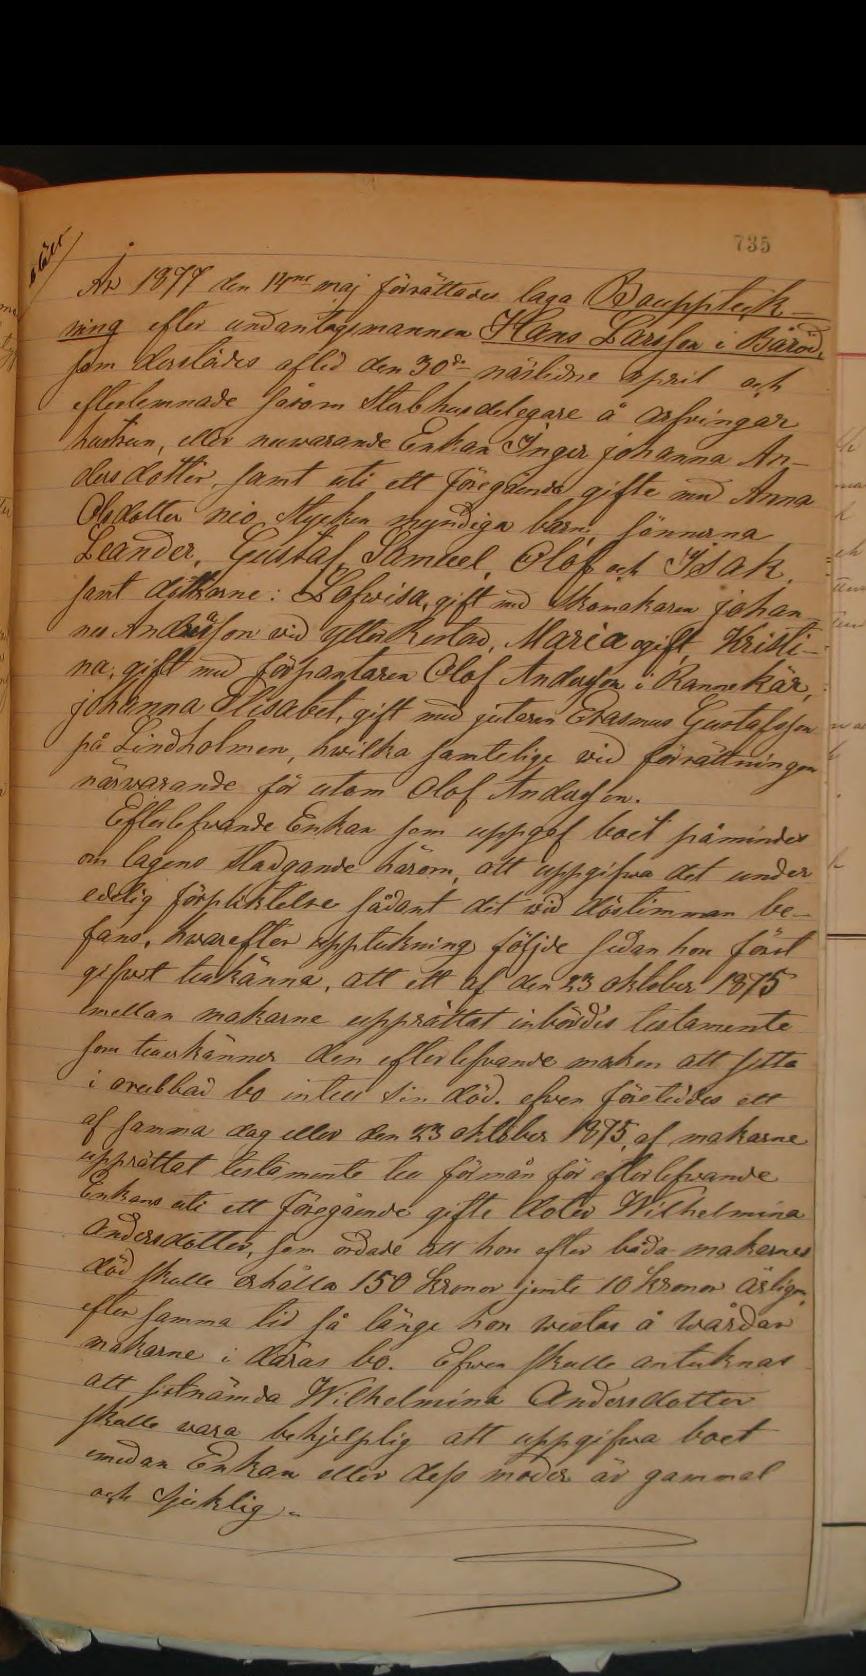 735
År 1877 den 14de maj förrättades laga Bouppteck-
ning efter undantagsmannen Hans Larsson i Båröd,
som derstädes afled den 30de näslidne april och
efterlemnade såsom Sterbhusdelegare å arfvingar
hustrun, eller nuwarande Enkan Inger johanna An-
dersdotter, samt uti ett föregående gifte med Anna
Olsdotter nio stycken myndiga barn, sönnerna
Leander, Gustaf, Samuel, Olof och Isak,
samt döttrarne: Lofvisa, gift med Skomakaren johan-
nes Andreasson vid Ytter Restad, Maria ogift, Kristi-
na, gift med förpantaren Olof Andersson i Rannekär,
johanna Elisabet, gift med Erasmus Gustafsson
på Lindholmen, hwilka samtelige vid förrättningen
närwarande för utom Olof Andersson.
Efterlefwande Enkan som uppgef boet påmindes
om lagens stadgande härom, att uppgifwa det under
edelig förpliktelse sådant det wid dödstimman be-
fans, hwarefter upptekning följde sedan hon först
gifwit teakänna, att ett af den 23 oktober 1875
mellan makarne upprättat inbördis testamente
som den efterlefvande maken att sitta
i orubbad bo intill sin död. efven företeddes ett
af samma dag eller den 23 oktober 1875, af makarne
upprättat testamente till förmån för efterlefwande
Enkans uti ett föregående gifte doter Wilhelmina
Andersdotter, som ordade att hon efter båda makarnes
död skulle erhålla 150 Kronor jemte 10 Kronor årligen
efter samma tid så länge hon westas å wårdar
makarne i däras bo. Efwen skulle antecknas
att sistnämda Wilhelmina Andersdotter
skulle vara behjelplig att uppgifwa boet
emedan Enkan eller dess moder är gammal
och sjuklig.